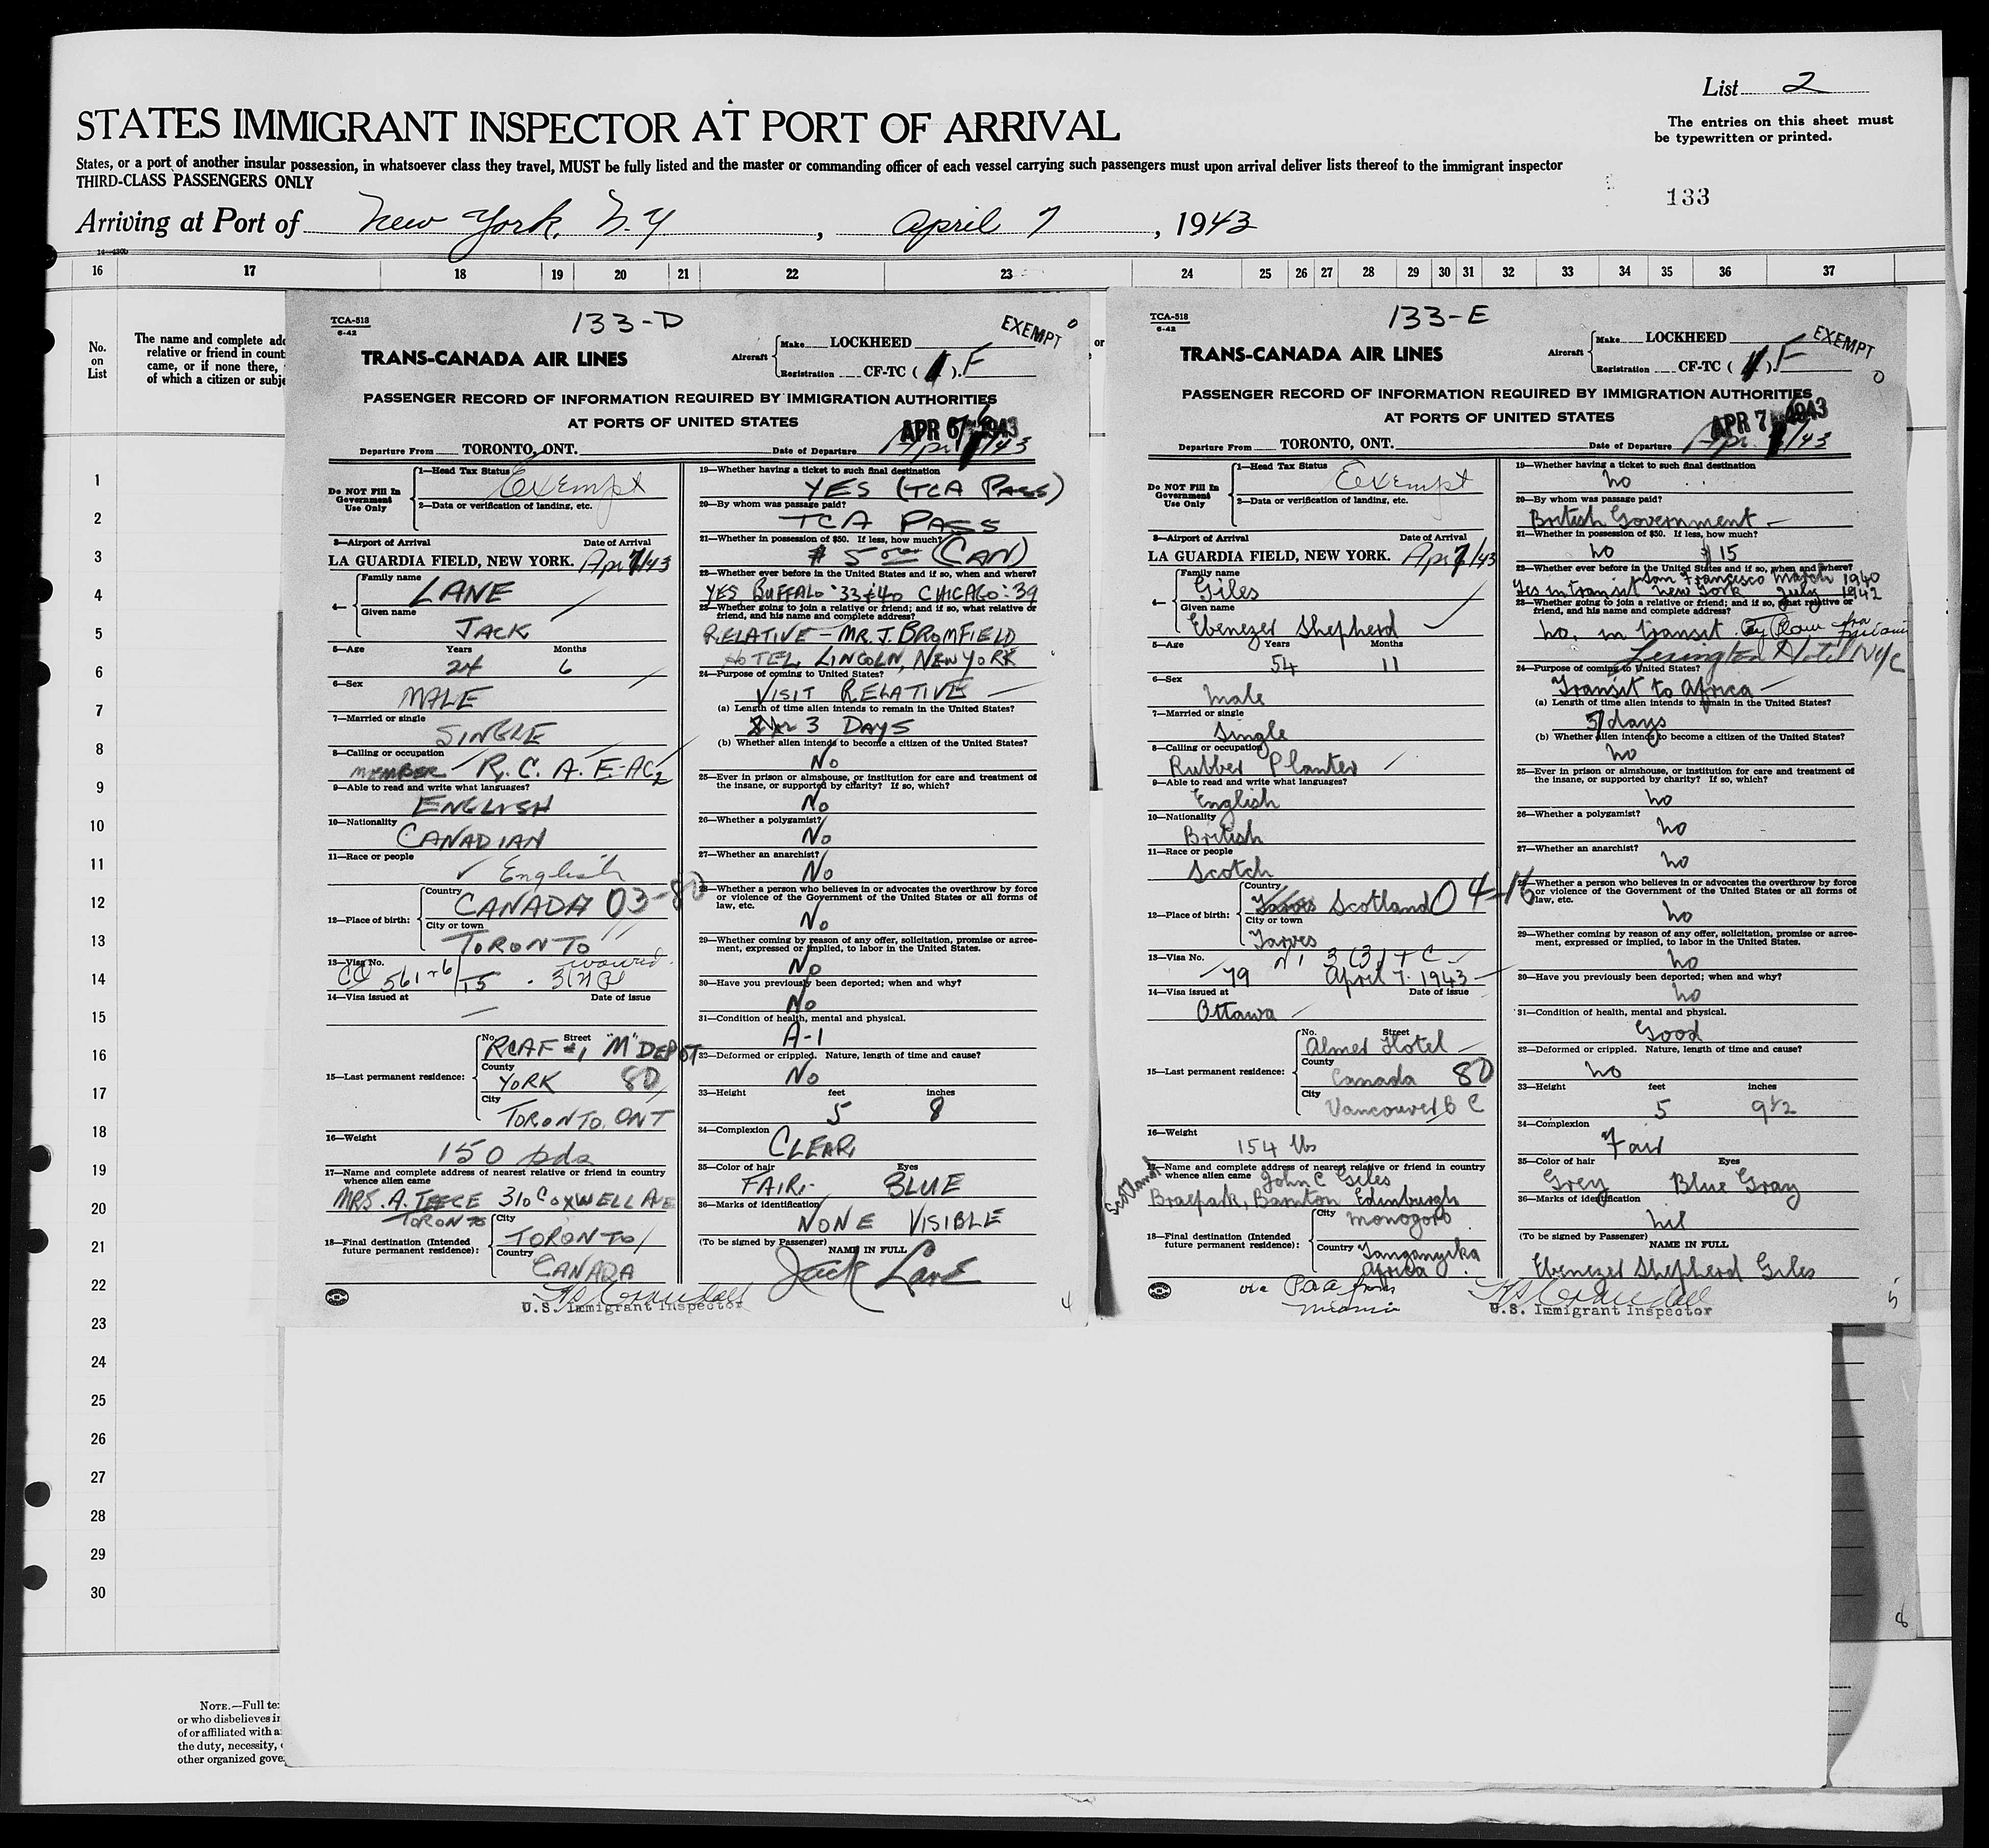 List 2
STATES IMMIGRANT INSPECTOR AT PORT OF ARRIVAL
The entries on this sheet must
be typewritten or printed.
States, or a port of another insular possession, in whatsoever class they travel, MUST be fully listed and the master or commanding officer of each vessel carrying such passengers must upon arrival deliver lists thereof to the immigrant inspector
THIRD-CLASS PASSENGERS ONLY
133
Arriving at Port of New York, N.Y , April 7 , 1943
16 17 18 19 20 21 22 23 24 25 26 27 28 29 30 31 32 33 34 35 36 37
No.
on
List
The name and complete add
relative or friend in count
came, or if none there,
of which a citizen or subje
or
1
2
3
4
5
6
7
8
9
10
11
12
13
14
15
16
17
18
19
20
21
22
23
24
25
26
27
28
29
30
NOTE.—Full te
or who disbelieves in
of or affiliated with a
the duty, necessity,
other organized gove
TCA-518
6-42
133-D
EXEMPT
TRANS-CANADA AIR LINES
Aircraft
Make LOCKHEED
Registration CF-TC ( ). F
PASSENGER RECORD OF INFORMATION REQUIRED BY IMMIGRATION AUTHORITIES
AT PORTS OF UNITED STATES
Departure From TORONTO, ONT. Date of Departure
Do NOT Fill In
Government
Use Only
1—Head Tax Status Exempt
2—Data or verification of landing, etc.
3—Airport of Arrival Date of Arrival
LA GUARDIA FIELD, NEW YORK. Apr 7/43
4—
Family name
LANE
Given name
JACK
5—Age Years Months
24 6
6—Sex
MALE
7—Married or single
SINGLE
8—Calling or occupation
MEMBER R.C.A.F-AC2
9—Able to read and write what languages?
ENGLISH
10—Nationality
CANADIAN
11—Race or people
English
12—Place of birth:
Country
CANADA 03-80
City or town
TORONTO
13—Visa No.
waived
14—Visa issued at Date of issue
15—Last permanent residence:
No. Street
RCAF #1 "M" DEPOT
County
YORK 80
City
TORONTO, ONT
16—Weight
150 pds
17—Name and complete address of nearest relative or friend in country
whence alien came
MRS. A. TEECE 310 COXWELL AVE
TORONTO
18—Final destination (Intended
future permanent residence):
City
TORONTO
Country
CANADA
U.S. Immigrant Inspector
19—Whether having a ticket to such final destination
YES (TCA PASS)
20—By whom was passage paid?
TCA PASS
21—Whether in possession of $50. If less, how much?
(CAN)
22—Whether ever before in the United States and if so, when and where?
YES BUFFALO '33 & 40 CHICAGO: 39
23—Whether going to join a relative or friend; and if so, what relative or
friend, and his name and complete address?
RELATIVE – MR. J. BROMFIELD
HOTEL LINCOLN, NEW YORK
24—Purpose of coming to United States?
VISIT RELATIVE
(a) Length of time alien intends to remain in the United States?
3 DAYS
(b) Whether alien intends to become a citizen of the United States?
NO
25—Ever in prison or almshouse, or institution for care and treatment of
the insane, or supported by charity? If so, which?
NO
26—Whether a polygamist?
NO
27—Whether an anarchist?
NO
28—Whether a person who believes in or advocates the overthrow by force
or violence of the Government of the United States or all forms of
law, etc.
NO
29—Whether coming by reason of any offer, solicitation, promise or agree-
ment, expressed or implied, to labor in the United States.
NO
30—Have you previously been deported; when and why?
NO
31—Condition of health, mental and physical.
A-1
32—Deformed or crippled. Nature, length of time and cause?
NO
33—Height feet inches
5 8
34—Complexion
CLEAR
35—Color of hair Eyes
FAIR BLUE
36—Marks of identification
NONE VISIBLE
(To be signed by Passenger) NAME IN FULL
Jack Lane
4
TCA-518
6-42
133-E
EXEMPT
TRANS-CANADA AIR LINES
Aircraft
Make LOCKHEED
Registration CF-TC ( ). F
PASSENGER RECORD OF INFORMATION REQUIRED BY IMMIGRATION AUTHORITIES
AT PORTS OF UNITED STATES
APR 7 1943
Departure From TORONTO, ONT. Date of Departure
Do NOT Fill In
Government
Use Only
1—Head Tax Status Exempt
2—Data or verification of landing, etc.
3—Airport of Arrival Date of Arrival
LA GUARDIA FIELD, NEW YORK. Apr 7/43
4—
Family name
Giles
Given name
Ebenezer Shepherd
5—Age Years Months
54 11
6—Sex
Male
7—Married or single
Single
8—Calling or occupation
Rubber Planter
9—Able to read and write what languages?
English
10—Nationality
British
11—Race or people
Scotch
12—Place of birth:
Country
Scotland 04-16
City or town
Tarves
13—Visa No.
79 April 7. 1943
14—Visa issued at Date of issue
Ottawa
15—Last permanent residence:
No. Street
Almer Hotel
County
Canada 80
City
Vancouver B C
16—Weight
154 lbs
17—Name and complete address of nearest relative or friend in country
whence alien came John C Giles
Braepark, Barnton Edinburgh
Scotland
18—Final destination (Intended
future permanent residence):
City
Monogoro
Country Tanganyika
Africa
via PAA from
Miami
19—Whether having a ticket to such final destination
no
20—By whom was passage paid?
British Government
21—Whether in possession of $50. If less, how much?
no $15
22—Whether ever before in the United States and if so, when and where?
San Francisco March 1940
Yes in transit New York July 1942
23—Whether going to join a relative or friend; and if so, what relative or
friend, and his name and complete address?
no, in transit
Lexington Hotel NYC
24—Purpose of coming to United States?
Transit to Africa
(a) Length of time alien intends to remain in the United States?
5 days
(b) Whether alien intends to become a citizen of the United States?
no
25—Ever in prison or almshouse, or institution for care and treatment of
the insane, or supported by charity? If so, which?
no
26—Whether a polygamist?
no
27—Whether an anarchist?
no
28—Whether a person who believes in or advocates the overthrow by force
or violence of the Government of the United States or all forms of
law, etc.
no
29—Whether coming by reason of any offer, solicitation, promise or agree-
ment, expressed or implied, to labor in the United States.
no
30—Have you previously been deported; when and why?
no
31—Condition of health, mental and physical.
Good
32—Deformed or crippled. Nature, length of time and cause?
no
33—Height feet inches
5 9 1/2
34—Complexion
Fair
35—Color of hair Eyes
Grey Blue Gray
36—Marks of identification
nil
(To be signed by Passenger)
NAME IN FULL
Ebenezer Shepherd Giles
U.S. Immigrant Inspector
5
8